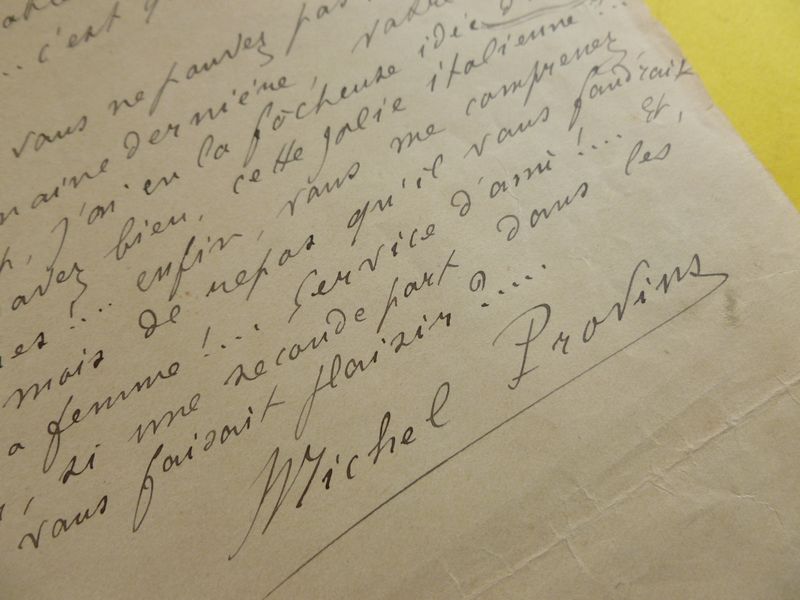 ... c'est
vous ne pouvez pas
maine dernière, votre
j'ai eu la fâcheuse idée d'
avez bien, cette jolie italienne!...
es!... enfin, vous me comprenez
mois de repos qu'il vous faudrait
a femme!... Service d'ami!... Et,
, si une seconde part dans les
vous faisait plaisir?....
Michel Provins